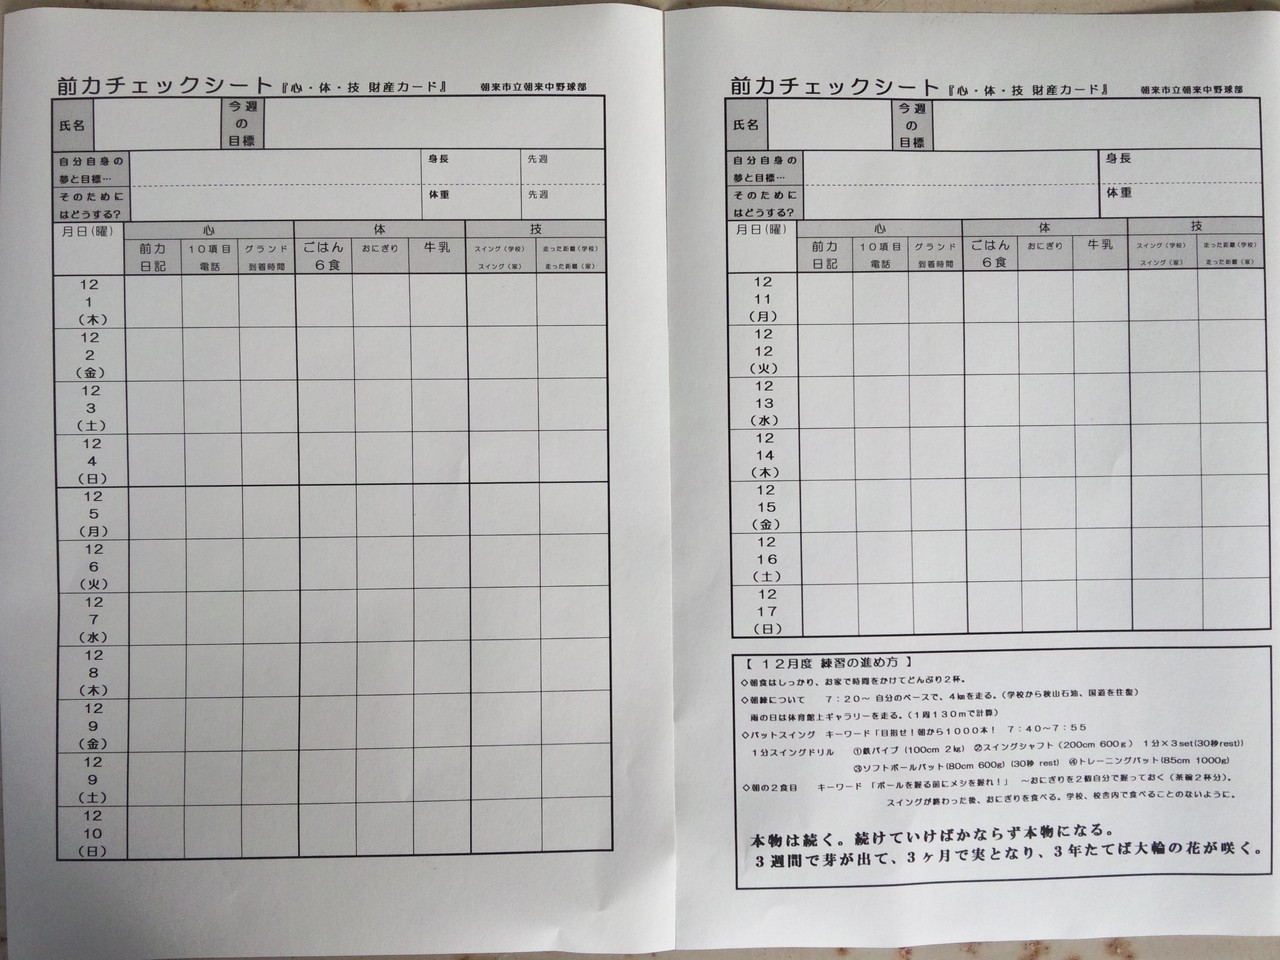 前力チェックシート『心・体・技 財産カード』 朝来市立朝来中野球部
氏名
今週
の
目標
自分自身の
夢と目標…
そのために
はどうする?
身長
先週
体重
先週
月日(曜)
心
体
技
前力
日記
10項目
電話
グランド
到着時間
ごはん
6食
おにぎり
牛乳
スイング(学校)
スイング(家)
走った距離(学校)
走った距離(家)
12
1
(木)
12
2
(金)
12
3
(土)
12
4
(日)
12
5
(月)
12
6
(火)
12
7
(水)
12
8
(木)
12
9
(金)
12
9
(土)
12
10
(日)
前力チェックシート『心・体・技 財産カード』 朝来市立朝来中野球部
氏名
今週
の
目標
自分自身の
夢と目標…
そのために
はどうする?
身長
体重
月日(曜)
心
体
技
前力
日記
10項目
電話
グランド
到着時間
ごはん
6食
おにぎり
牛乳
スイング(学校)
スイング(家)
走った距離(学校)
走った距離(家)
12
11
(月)
12
12
(火)
12
13
(水)
12
14
(木)
12
15
(金)
12
16
(土)
12
17
(日)
【 12月度 練習の進め方 】
◇朝食はしっかり、お家で時間をかけてどんぶり2杯。
◇朝練について 7:20~ 自分のペースで、4㎞を走る。(学校から秋山石油、国道を往復)
雨の日は体育館上ギャラリーを走る。(1周130mで計算)
◇バットスイング キーワード「目指せ!朝から1000本! 7:40~7:55
1分スイングドリル ①鉄パイプ (100cm 2㎏) ②スイングシャフト (200cm 600g) 1分×3set(30秒rest))
③ソフトボールバット(80cm 600g) (30秒 rest) ④トレーニングバット(85cm 1000g)
◇朝の2食目 キーワード 「ボールを握る前にメシを握れ!」 ~おにぎりを2個自分で握っておく(茶碗2杯分)。
スイングが終わった後、おにぎりを食べる。学校、校舎内で食べることのないように。
本物は続く。続けていけばかならず本物になる。
3週間で芽が出て、3ヶ月で実となり、3年たてば大輪の花が咲く。